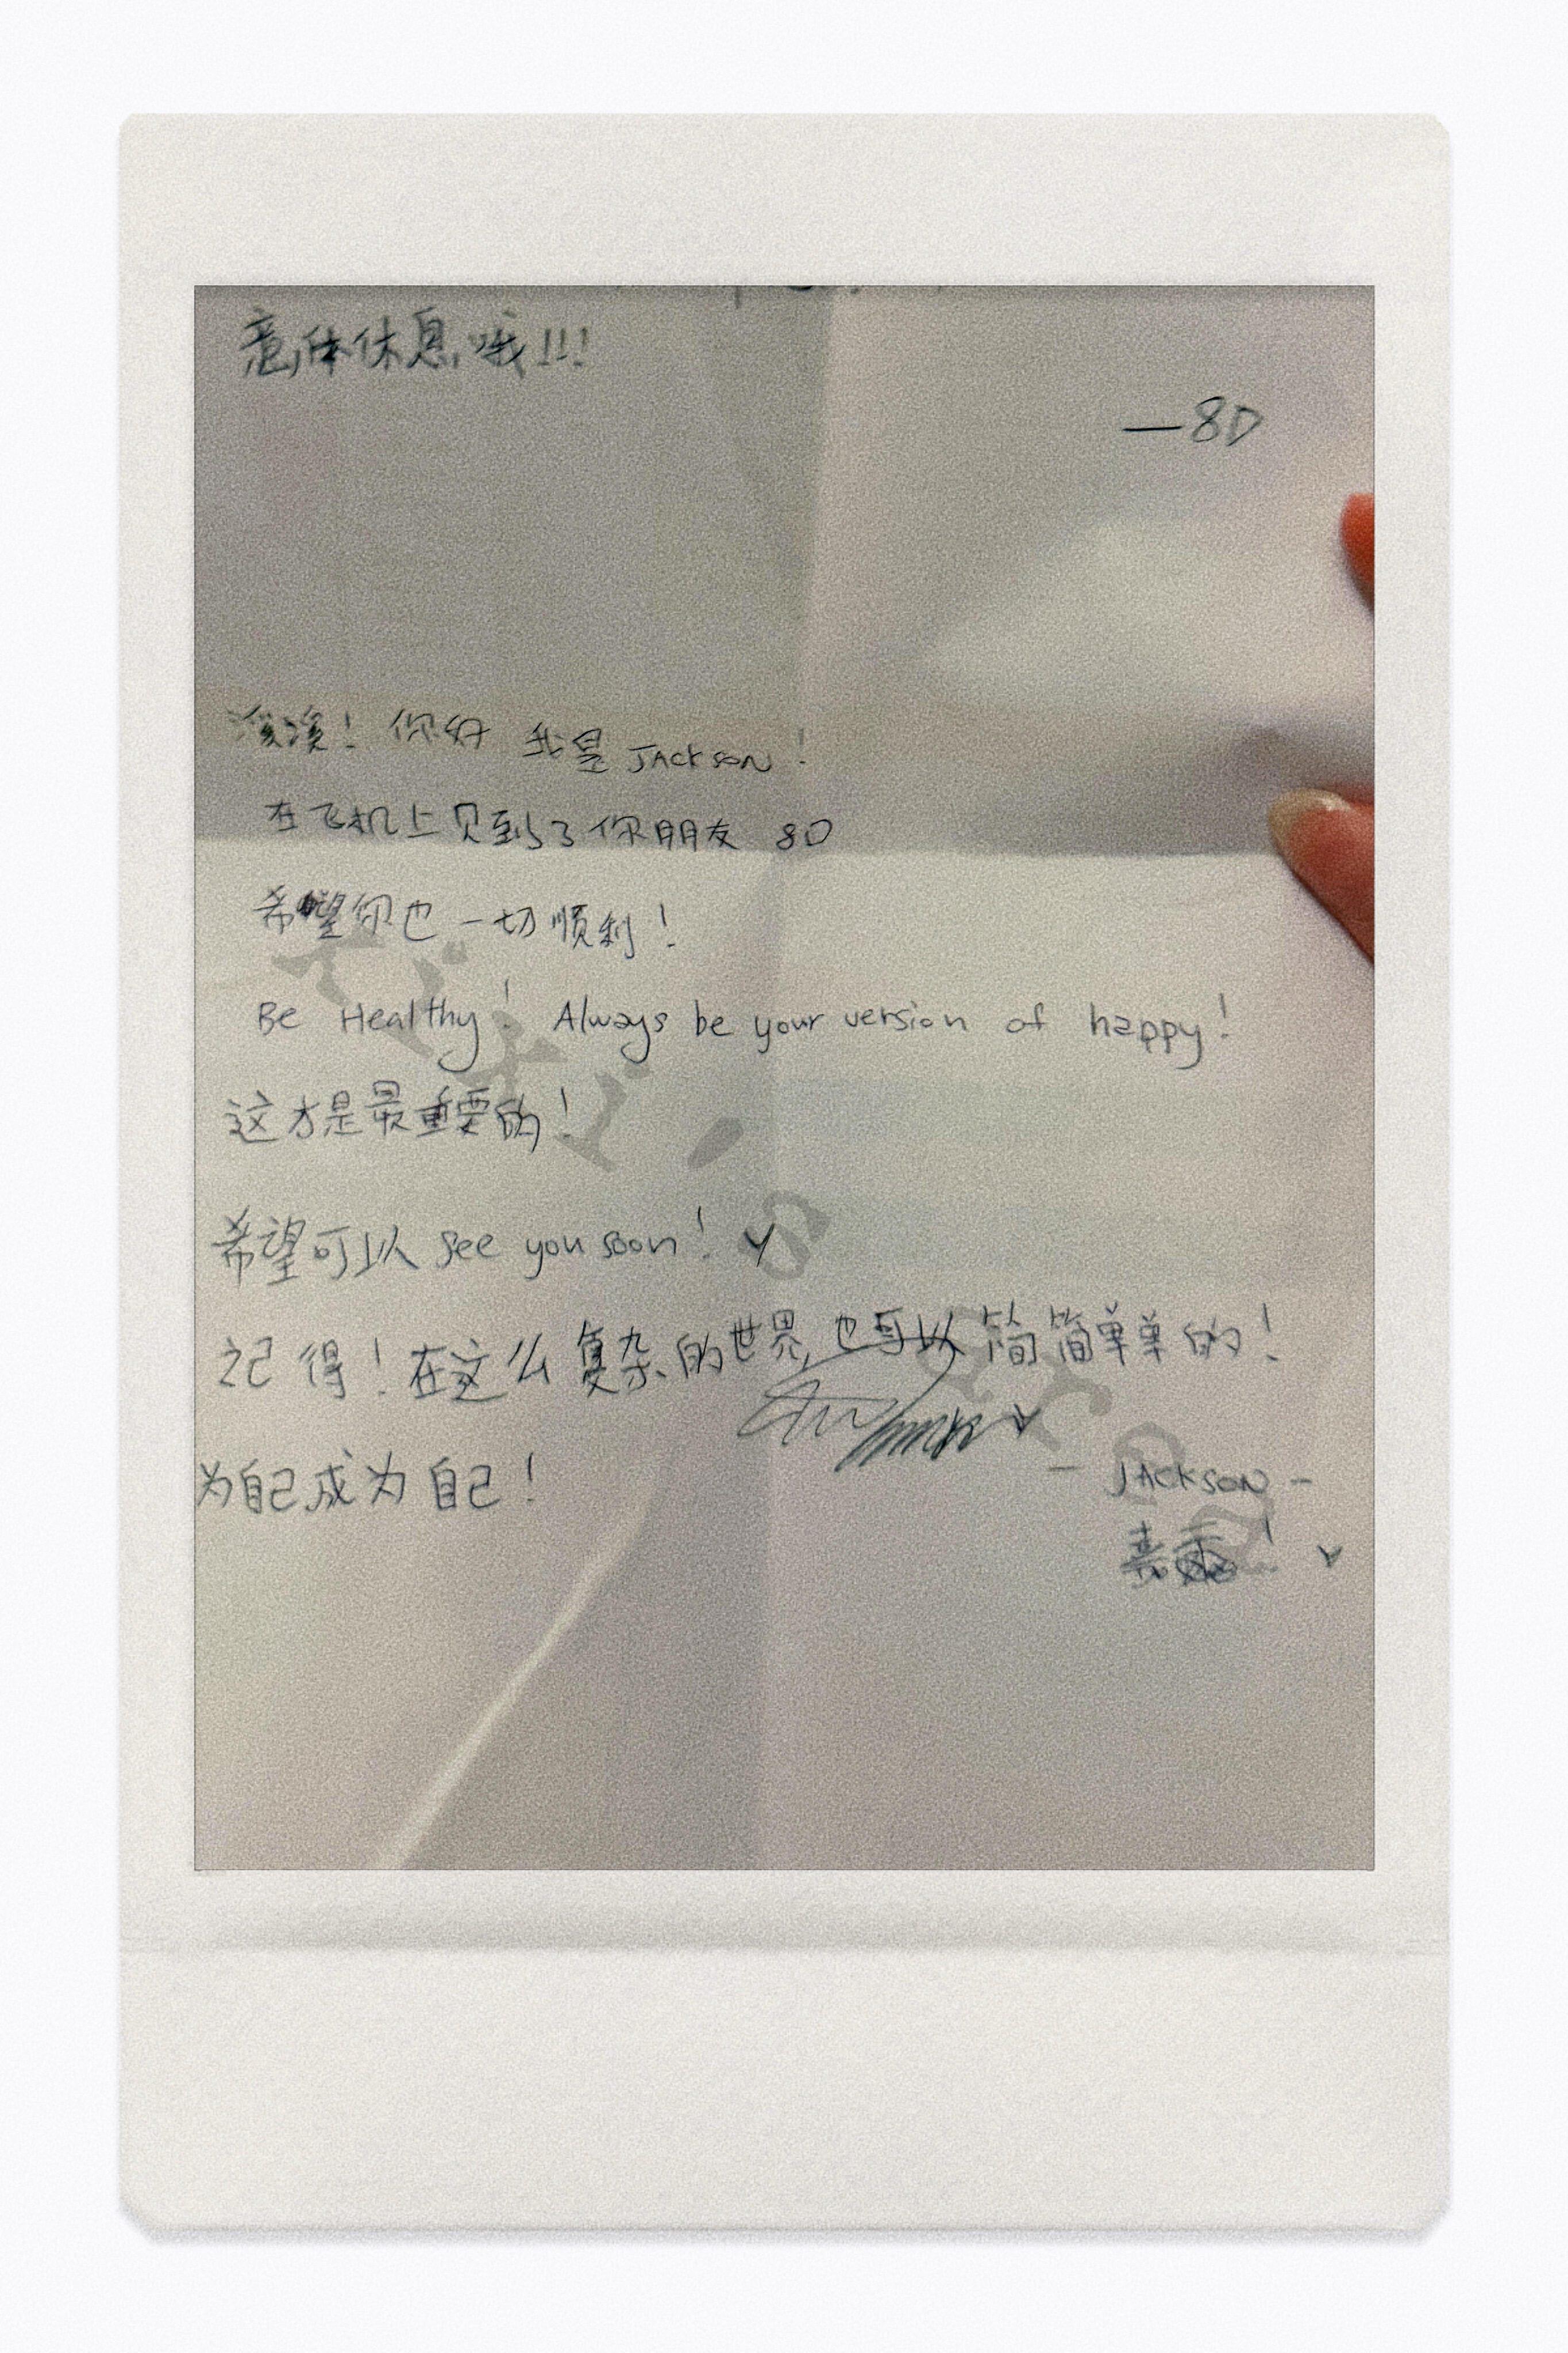 意体休息哦!!!
—8D
溪溪! 你好 我是 JACKSON!
在飞机上见到了你朋友 8D
希望你也一切顺利!
Be Healthy! Always be your version of happy!
这才是最重要的!
希望可以 see you soon!
记得!在这么复杂的世界,也可以简简单单的!
为自己成为自己!
- JACKSON -
嘉